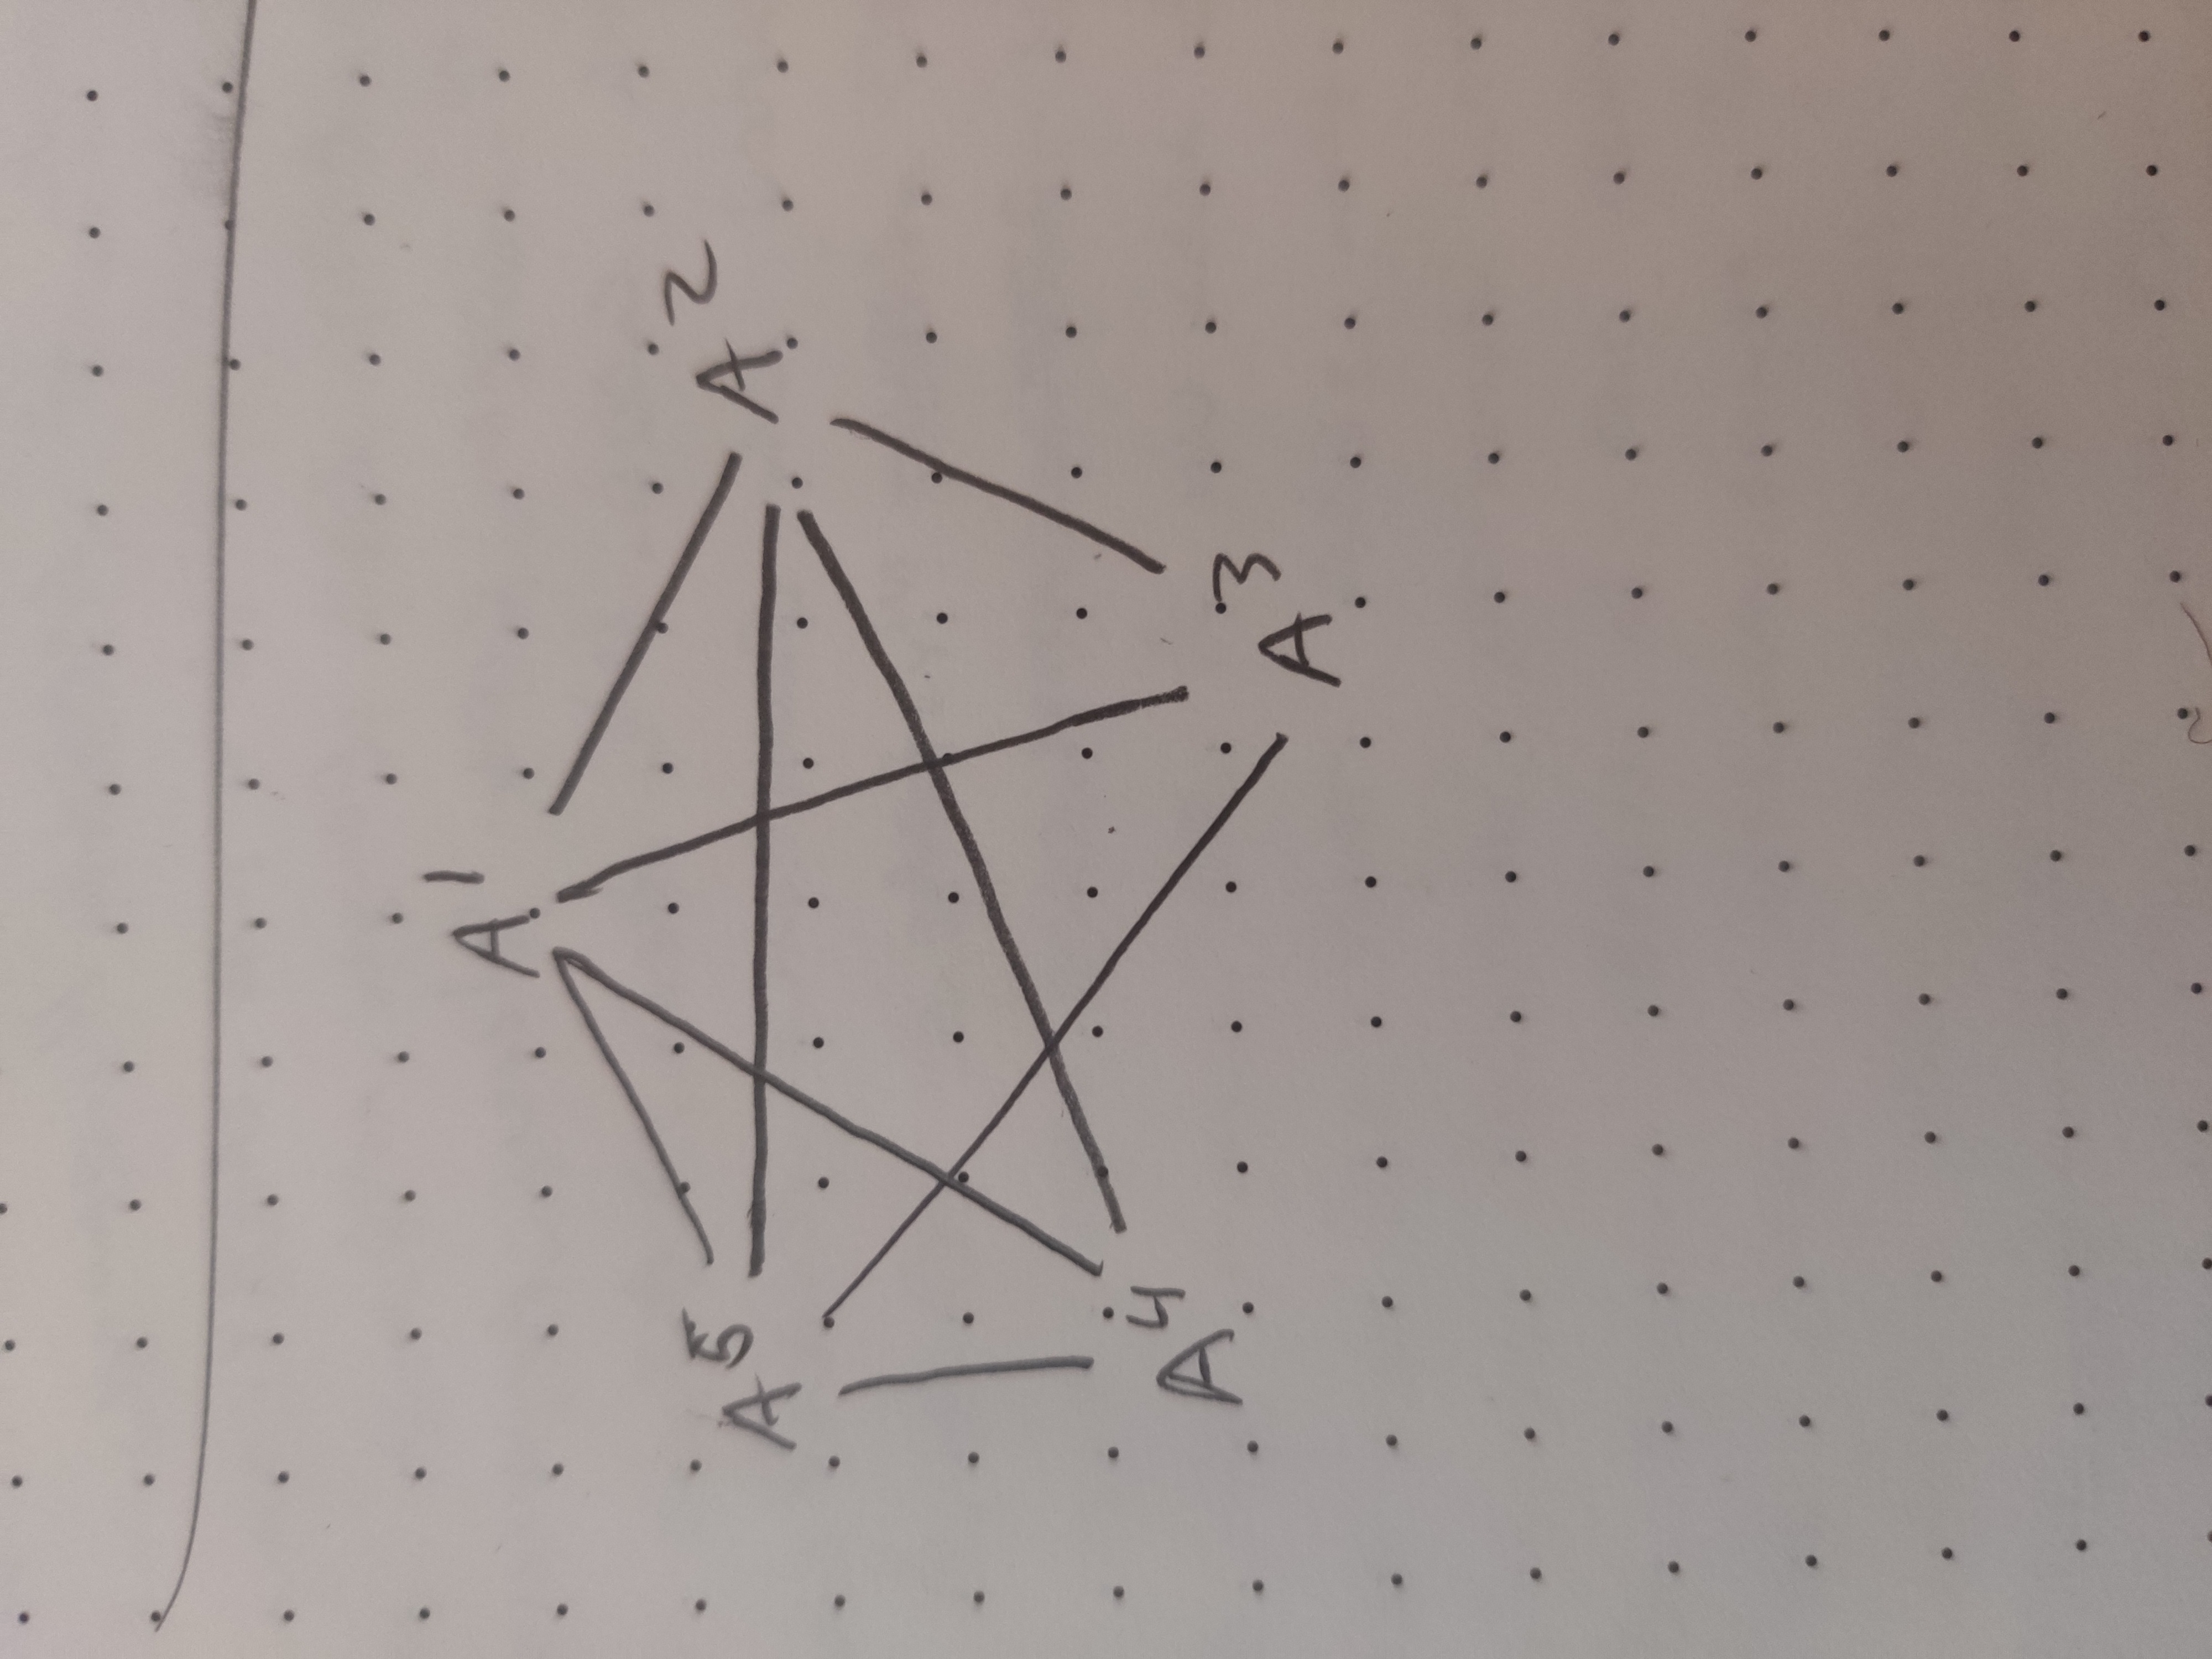 A¹
A⁵
A²
A⁴
A³